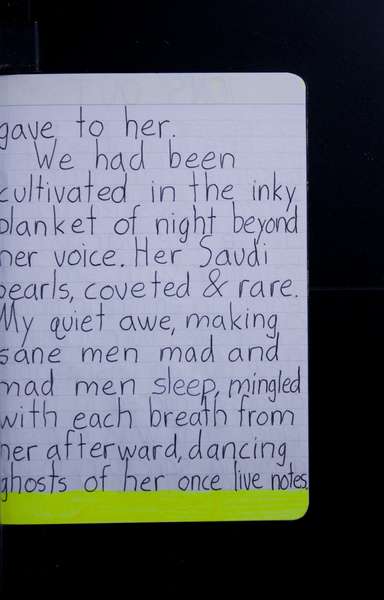 gave to her.
We had been
cultivated in the inky
blanket of night beyond
her voice. Her Saudi
pearls, coveted & rare.
My quiet awe, making
sane men mad and
mad men sleep, mingled
with each breath from
her afterward, dancing
ghosts of her once live notes.